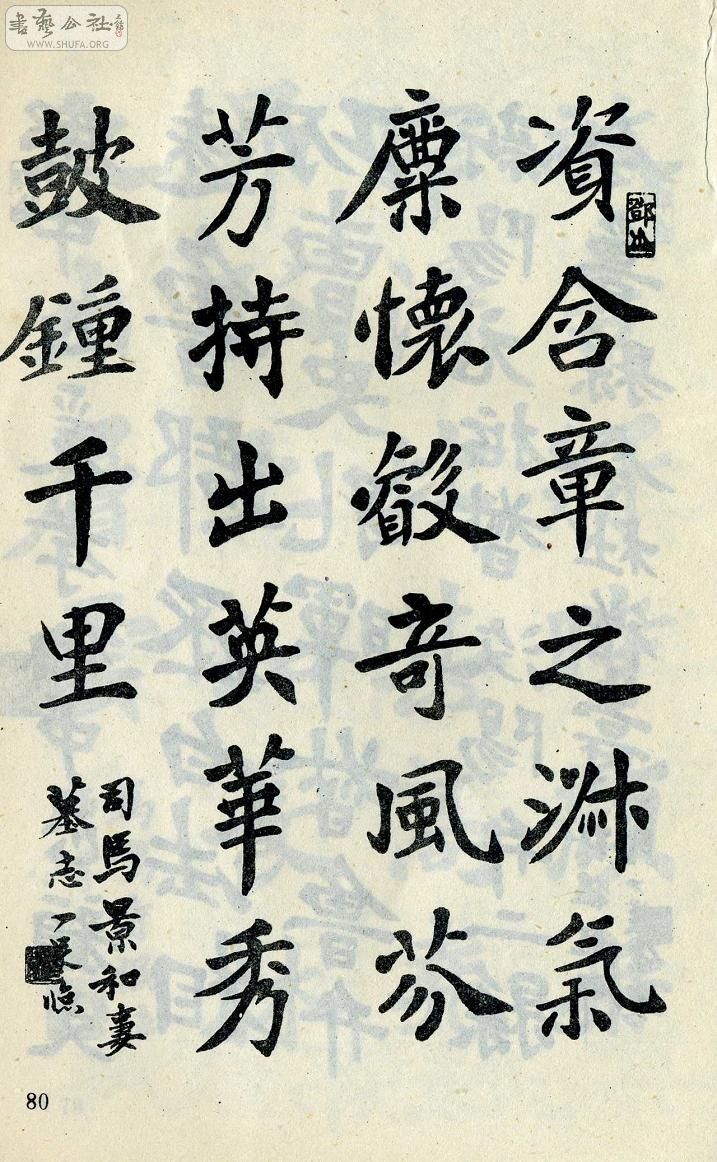 書藝公社
WWW.SHUFA.ORG
資含章之淑氣
稟懷叡奇風芬
芳持出英華秀
鼓鍾千里
司馬景和妻
墓志 一 臨
80